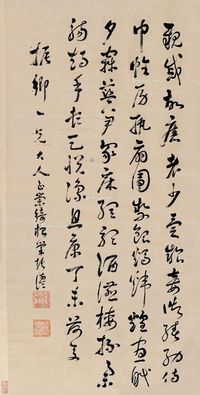 親戚故舊老少異糧妾御績紡侍
巾帷房紈扇圓潔銀燭煒煌晝眠
夕寐藍筍象床弦歌酒讌接杯舉
觴矯手頓足悅豫且康丁未荷
振鄉一兄大人正